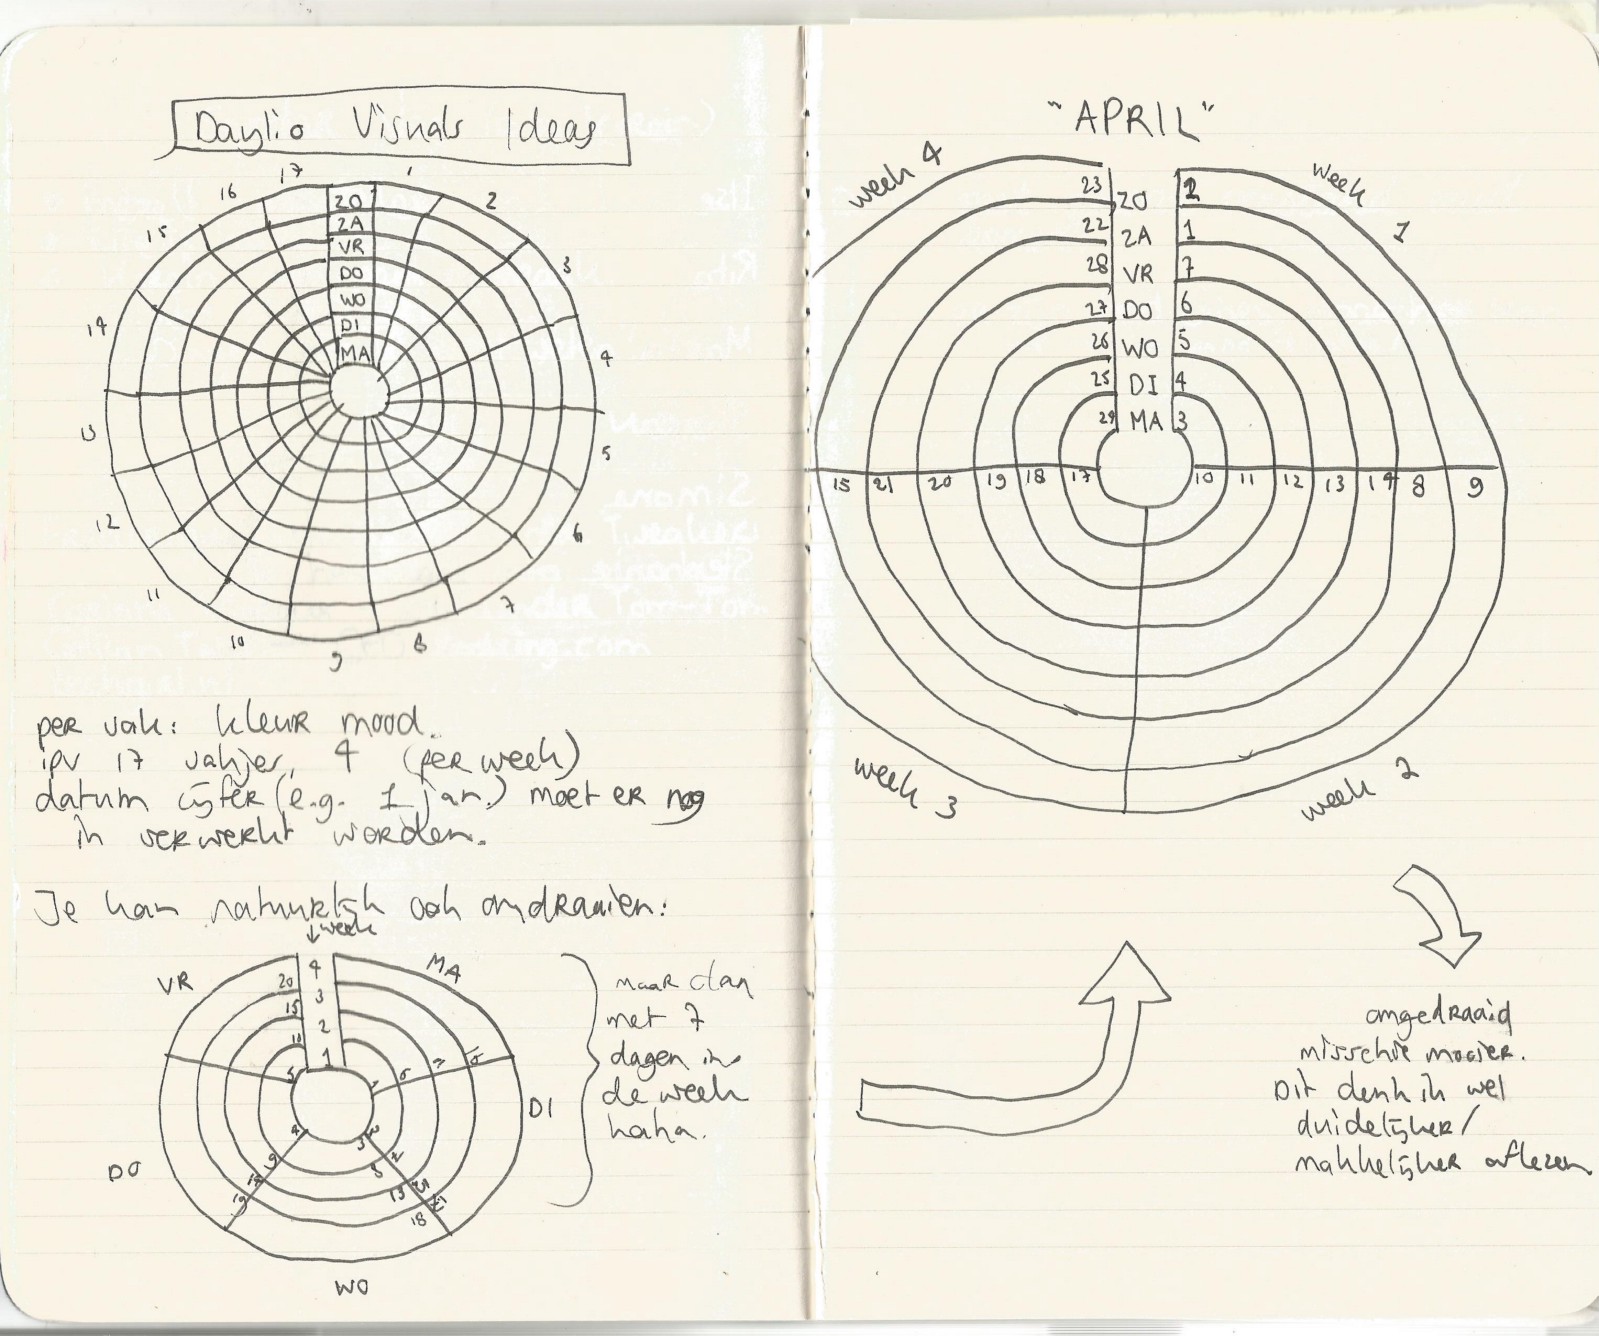 Daylio Visuals Ideas
1
2
3
4
5
6
7
8
9
10
11
12
13
14
15
16
17
ZO
ZA
VR
DO
WO
DI
MA
per vak: kleur mood.
ipv 17 vakjes, 4 (per week)
datum cijfer (e.g. 1 jan.) moet er nog
in verwerkt worden.
Je kan natuurlijk ook omdraaien:
↓ week
VR
MA
20 4
15 3
10 2
5 1
DI
DO
WO
maar dan
met 7
dagen in
de week
haha.
"APRIL"
week 4
week 1
23 ZO 2
22 ZA 1
28 VR 7
27 DO 6
26 WO 5
25 DI 4
MA 3
15 21 20 19 18 17 10 11 12 13 14 8 9
week 3
week 2
omgedraaid
misschie mooier.
Dit denk ik wel
duidelijker/
makkelijker aflezen